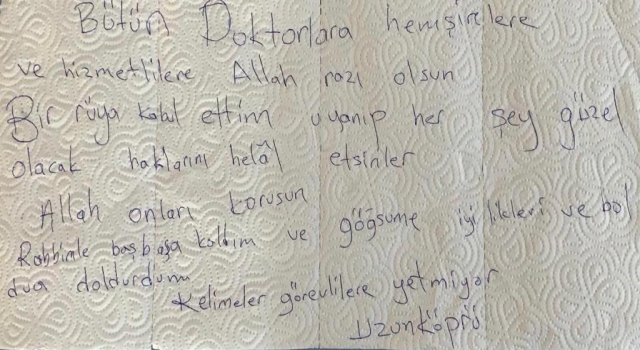 Bütün Doktorlara hemşirelere
ve hizmetlilere Allah razı olsun
Bir rüya kabul ettim uyanıp her şey güzel
olacak haklarını helâl etsinler
Allah onları korusun
Rabbimle başbaşa kaldım ve göğsüme iyilikleri ve bol
dua doldurdum
Kelimeler görevlilere yetmiyor
Uzunköprü